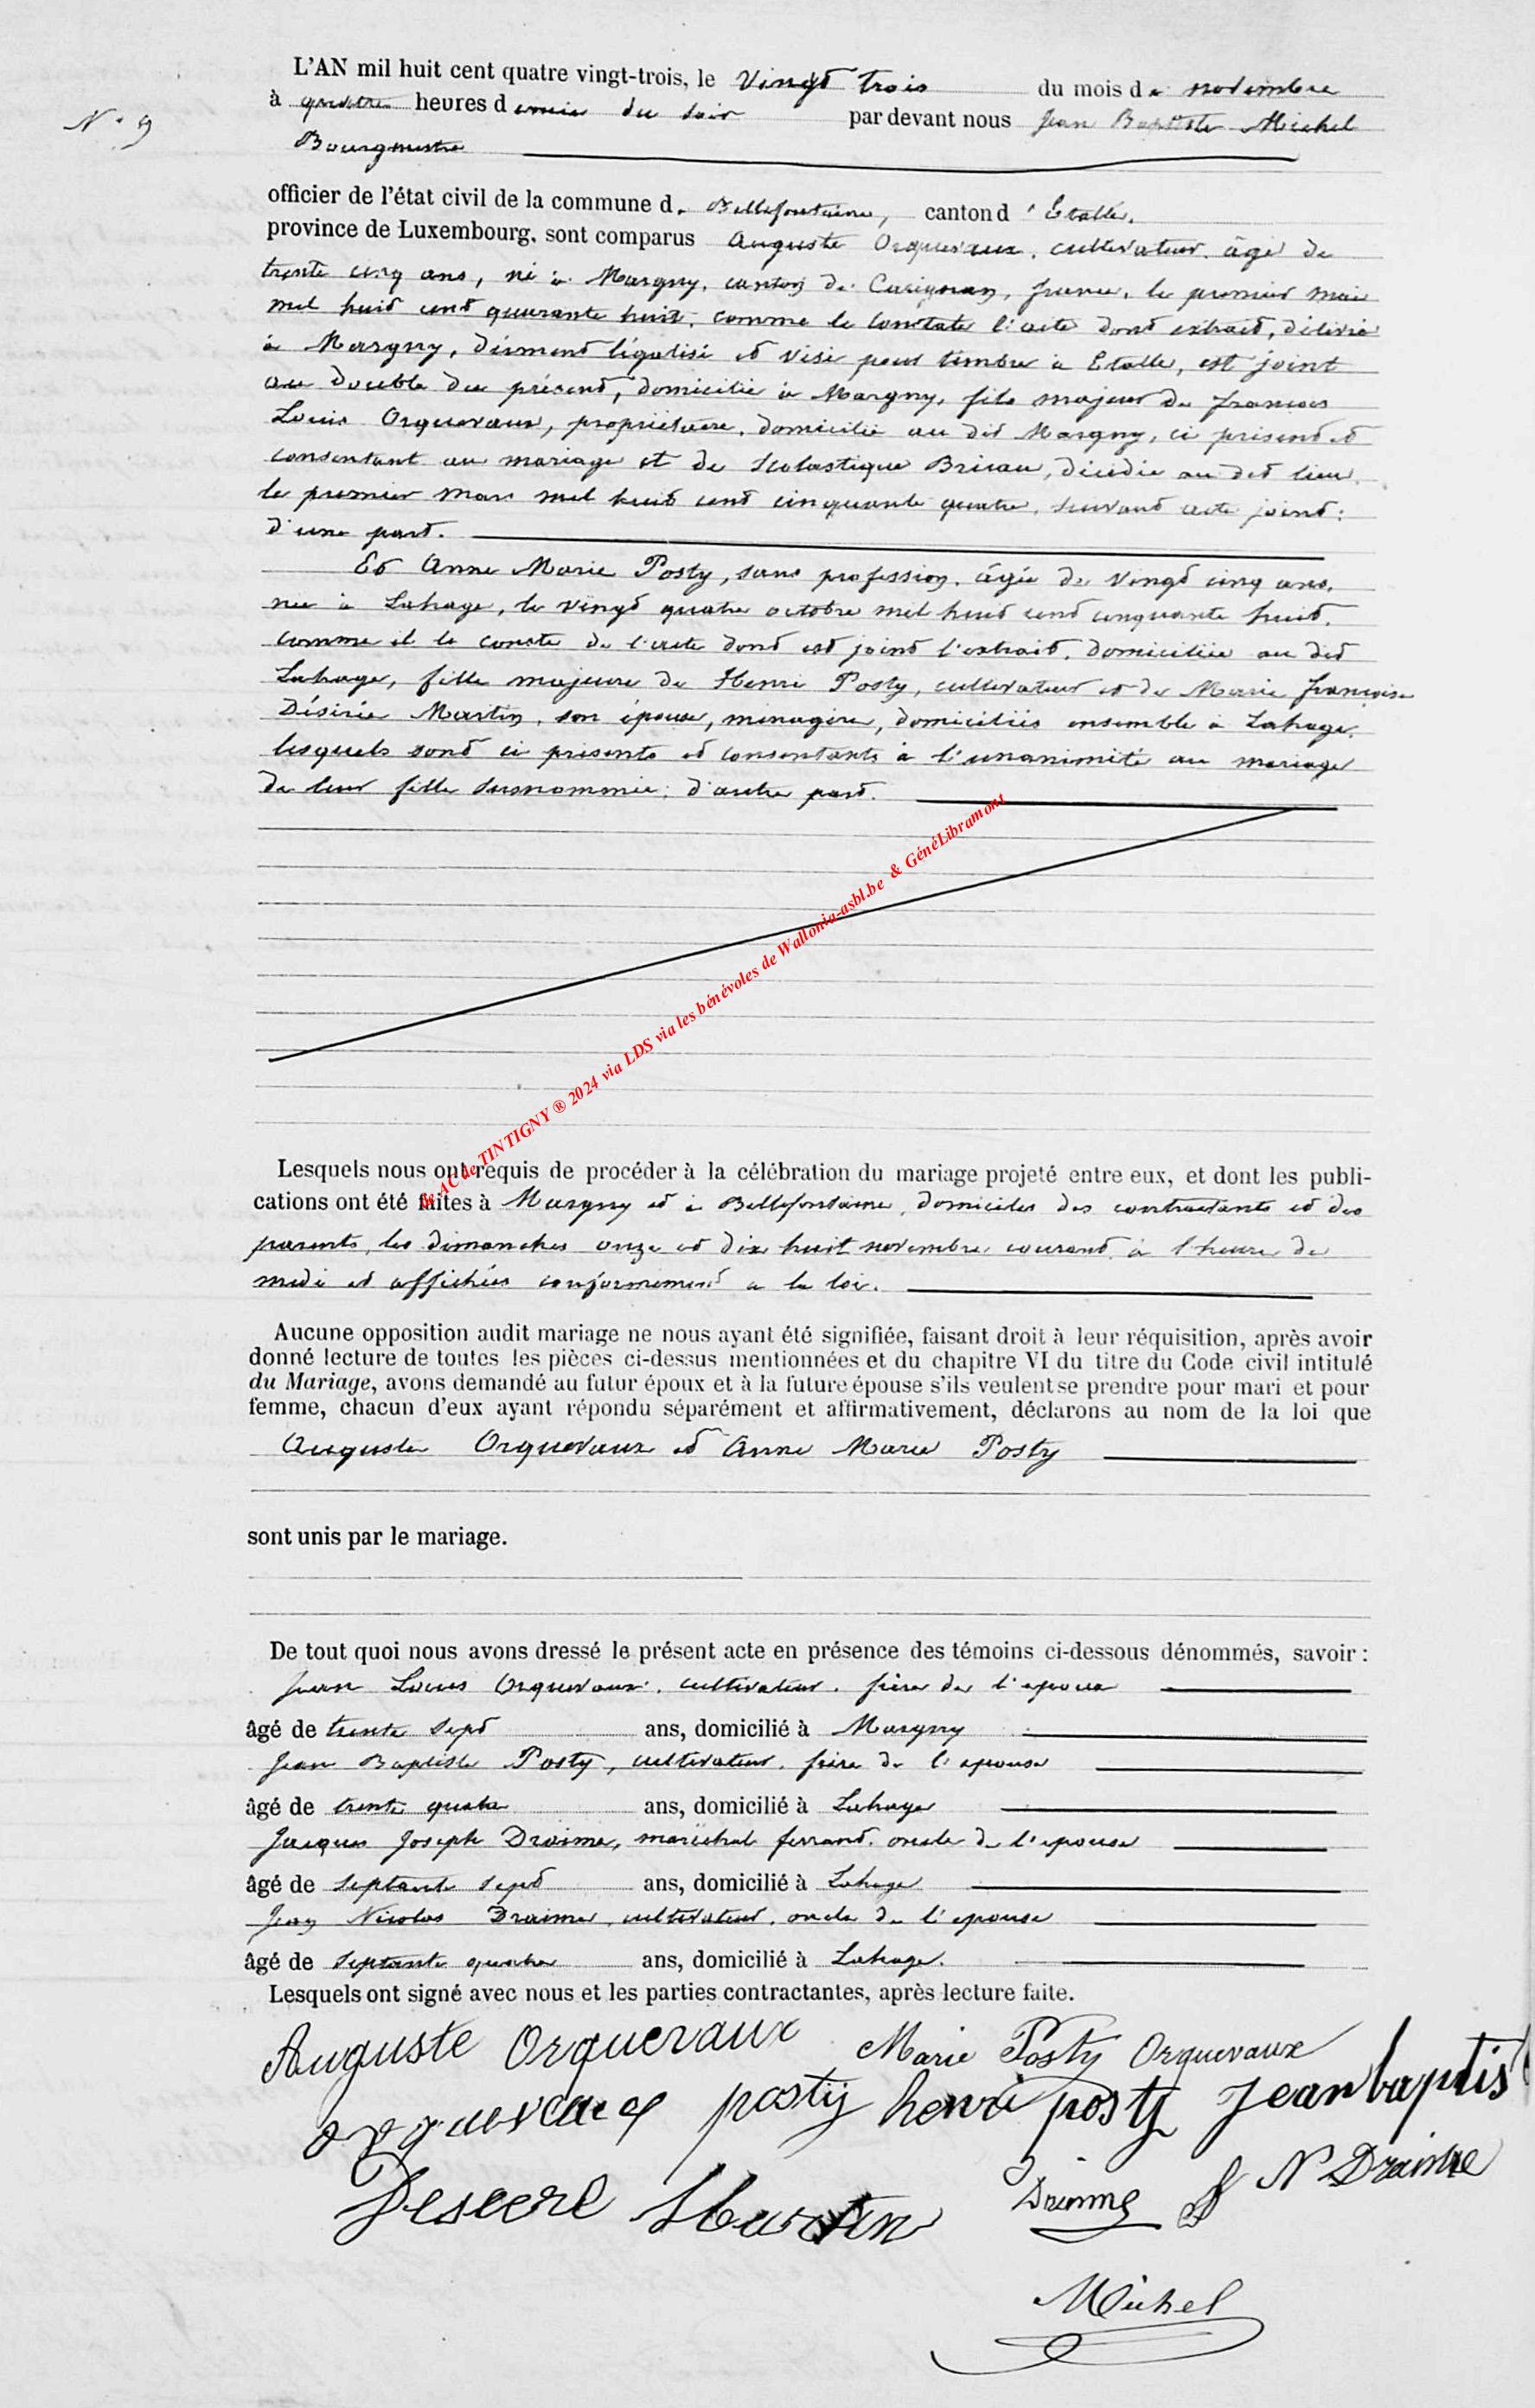 N° 9
L'AN mil huit cent quatre vingt-trois, le Vingt trois du mois de novembre
à quatre heures demie du soir par devant nous Jean Baptiste Michel
Bourgmestre
officier de l'état civil de la commune de Bellefontaine, canton d'Etalle,
province de Luxembourg, sont comparus Auguste Orquevaux, cultivateur, âgé de
trente cinq ans, né à Margny, canton de Carignan, france, le premier mai
mil huit cent quarante huit, comme le constate l'acte dont extrait, délivré
à Margny, dûment légalisé et visé pour timbre à Etalle, est joint
au double du présent, domicilié à Margny, fils majeur de françois
Louis Orquevaux, propriétaire, domicilié au dit Margny, ci présent et
consentant au mariage et de Scolastique Bricau, décédée au dit lieu
le premier mars mil huit cent cinquante quatre, suivant acte joint;
d'une part.
Et Anne Marie Posty, sans profession, âgée de vingt cinq ans,
née à Lahage, le vingt quatre octobre mil huit cent cinquante huit,
comme il le conste de l'acte dont est joint l'extrait, domiciliée au dit
Lahage, fille majeure de Henri Posty, cultivateur et de Marie françoise
Désirée Martin, son épouse, ménagère, domiciliés ensemble à Lahage,
lesquels sont ci présents et consentants à l'unanimité au mariage
de leur fille susnommée; d'autre part.
® AC de TINTIGNY ® 2024 via LDS via les bénévoles de Wallonia-asbl.be & GénéLibramont
Lesquels nous ont requis de procéder à la célébration du mariage projeté entre eux, et dont les publi-
cations ont été faites à Margny et à Bellefontaine, domiciles des contractants et des
parents, les dimanches onze et dix huit novembre courant à l'heure de
midi et affichées conformément à la loi.
Aucune opposition audit mariage ne nous ayant été signifiée, faisant droit à leur réquisition, après avoir
donné lecture de toutes les pièces ci-dessus mentionnées et du chapitre VI du titre du Code civil intitulé
du Mariage, avons demandé au futur époux et à la future épouse s'ils veulent se prendre pour mari et pour
femme, chacun d'eux ayant répondu séparément et affirmativement, déclarons au nom de la loi que
Auguste Orquevaux et Anne Marie Posty
sont unis par le mariage.
De tout quoi nous avons dressé le présent acte en présence des témoins ci-dessous dénommés, savoir :
Jean Louis Orquevaux, cultivateur, frère de l'époux
âgé de trente sept ans, domicilié à Margny
Jean Baptiste Posty, cultivateur, frère de l'épouse
âgé de trente quatre ans, domicilié à Lahage
Jacques Joseph Draime, maréchal ferrant, oncle de l'épouse
âgé de septante sept ans, domicilié à Lahage
Jean Nicolas Draime, cultivateur, oncle de l'épouse
âgé de septante quatre ans, domicilié à Lahage.
Lesquels ont signé avec nous et les parties contractantes, après lecture faite.
Auguste Orquevaux Marie Posty Orquevaux
orquevaux posty henri posty Jean baptis
Deseere Martin Draime J N Draime
Michel